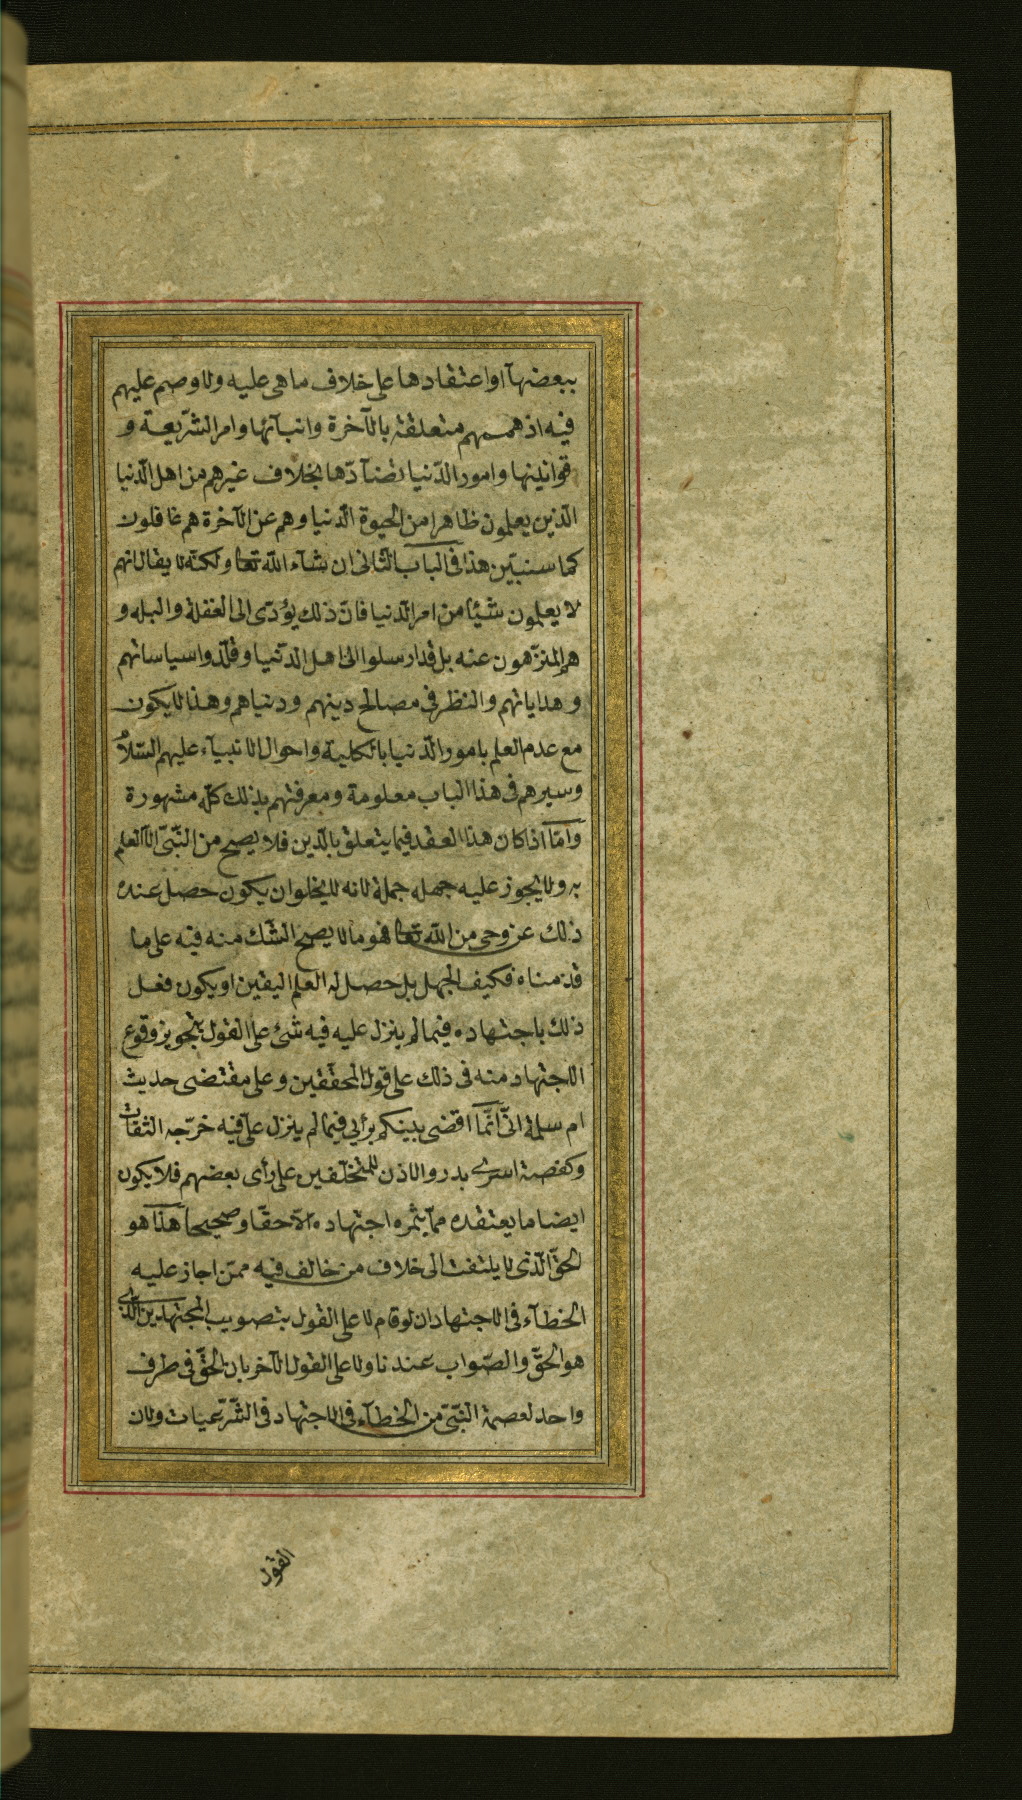 ببعضهآ او اعتقادها على خلاف ما هى عليه ولا وصم عليهم
فيه اذ هممهم متعلقة بالآخرة وانبآئها وامر الشّريعة و
قوانينها وامور الدّنيا تضآدّها بخلاف غيرهم من اهل الدّنيا
الّذين يعلمون ظاهرا من الحيوة الدّنيا وهم عن الآخرة هم غافلون
كما سنبيّن هذا فى الباب الثّانى ان شآء اللّه تعا ولكنّه لا يقال انهم
لا يعلمون شيئا من امر الدّنيا فانّ ذلك يؤدّى الى الغفلة والبله و
هم المنزّهون عنه بل قد ارسلوا الى اهل الدّنيا وقلّدوا سياساتهم
وهداياتهم والنظر فى مصالح دينهم ودنياهم وهذا لا يكون
مع عدم العلم بامور الدّنيا بالكلية واحوال الانبيآء عليهم السّلام
وسيرهم فى هذا الباب معلومة ومعرفتهم بذلك كلّه مشهورة
وامّا اذا كان هذا العقد فيما يتعلق بالدّين فلا يصح من النّبىّ الّا العلم
به ولا يجوز عليه جهله جملة لانه لا يخلو ان يكون حصل عنده
ذلك عن وحى من اللّه تعا فهو ما لا يصح الشك منه فيه على ما
قدّمناه فكيف الجهل بل حصل له العلم اليقين او يكون فعل
ذلك باجتهاده فيما لم ينزل عليه فيه شئ على القول بتجويز وقوع
الاجتهاد منه فى ذلك على قول المحققين وعلى مقتضى حديث
ام سلمة انّى انّما اقضى بينكم برأيى فيما لم ينزل علىّ فيه خرّجه الثقات
وكقصة اسرى بدر والاذن للمتخلّفين على رأى بعضهم فلا يكون
ايضا ما يعتقده ممّا يثمره اجتهاده الّا حقّا وصحيحا هذا هو
الحقّ الّذى لا يلتفت الى خلاف من خالف فيه ممّن اجاز عليه
الخطآء فى الاجتهاد لا على القول بتصويب المجتهدين الّذى
هو الحقّ والصّواب عندنا ولا على القول الآخر بان الحقّ فى طرف
واحد لعصمة النّبىّ من الخطآء فى الاجتهاد فى الشّرعيات ولان
القول